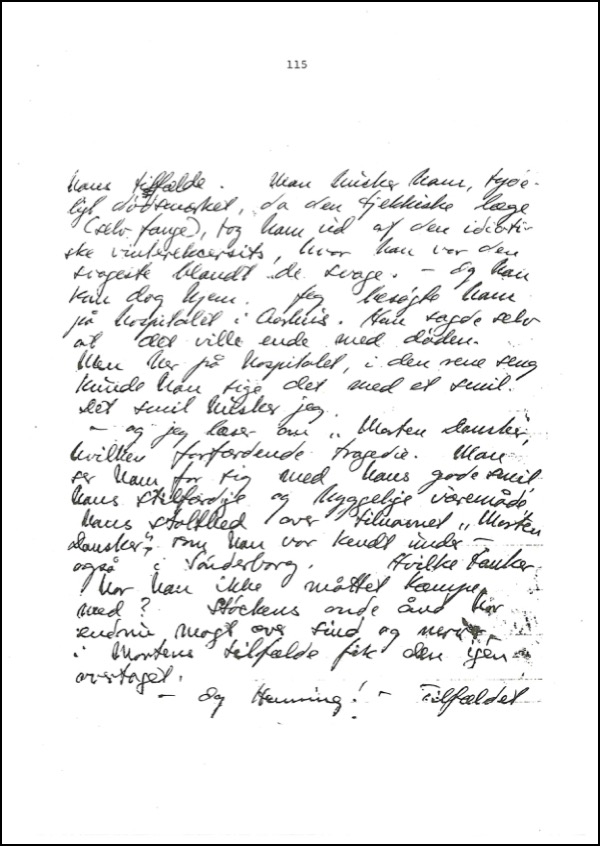 115
hans tilfælde. Man husker ham, tyde-
ligt dødsmærket, da den tjekkiske læge
(selv fange), tog ham ud af den idioti-
ske vinterekcersits, hvor han var den
svageste blandt de svage. – Og han
kom dog hjem. Jeg besøgte ham
på hospitalet i Aarhus. Han sagde selv
at det ville ende med døden.
Men her på hospitalet, i den rene seng
kunde han sige det med et smil.
Det smil husker jeg.
– og jeg læser om „Morten Dansker,
hvilken forfærdende tragedie. Man
ser ham for sig med hans gode smil
hans stilfærdige og hyggelige væremåde
hans stolthed over tilnavnet „Morten
Dansker", som han var kendt under –
også i Sønderborg. Hvilke Tanker
har han ikke måttet kæmpe
med? Stöckens onde ånd har
endnu magt over sind og nerver,
i Mortens tilfælde fik den igen
overtaget.
– Og Henning! – Tilfældet